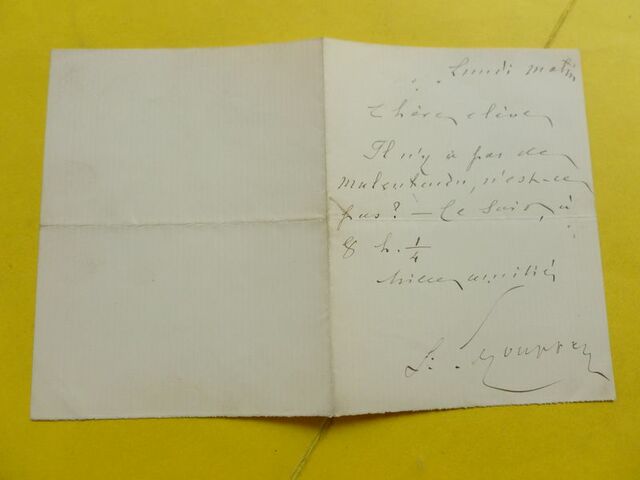 Lundi matin
Chère élève
Il n'y a pas de
malentendu, n'est-ce
pas? — Ce soir, à
8 h. 1/4
amitiés
L.